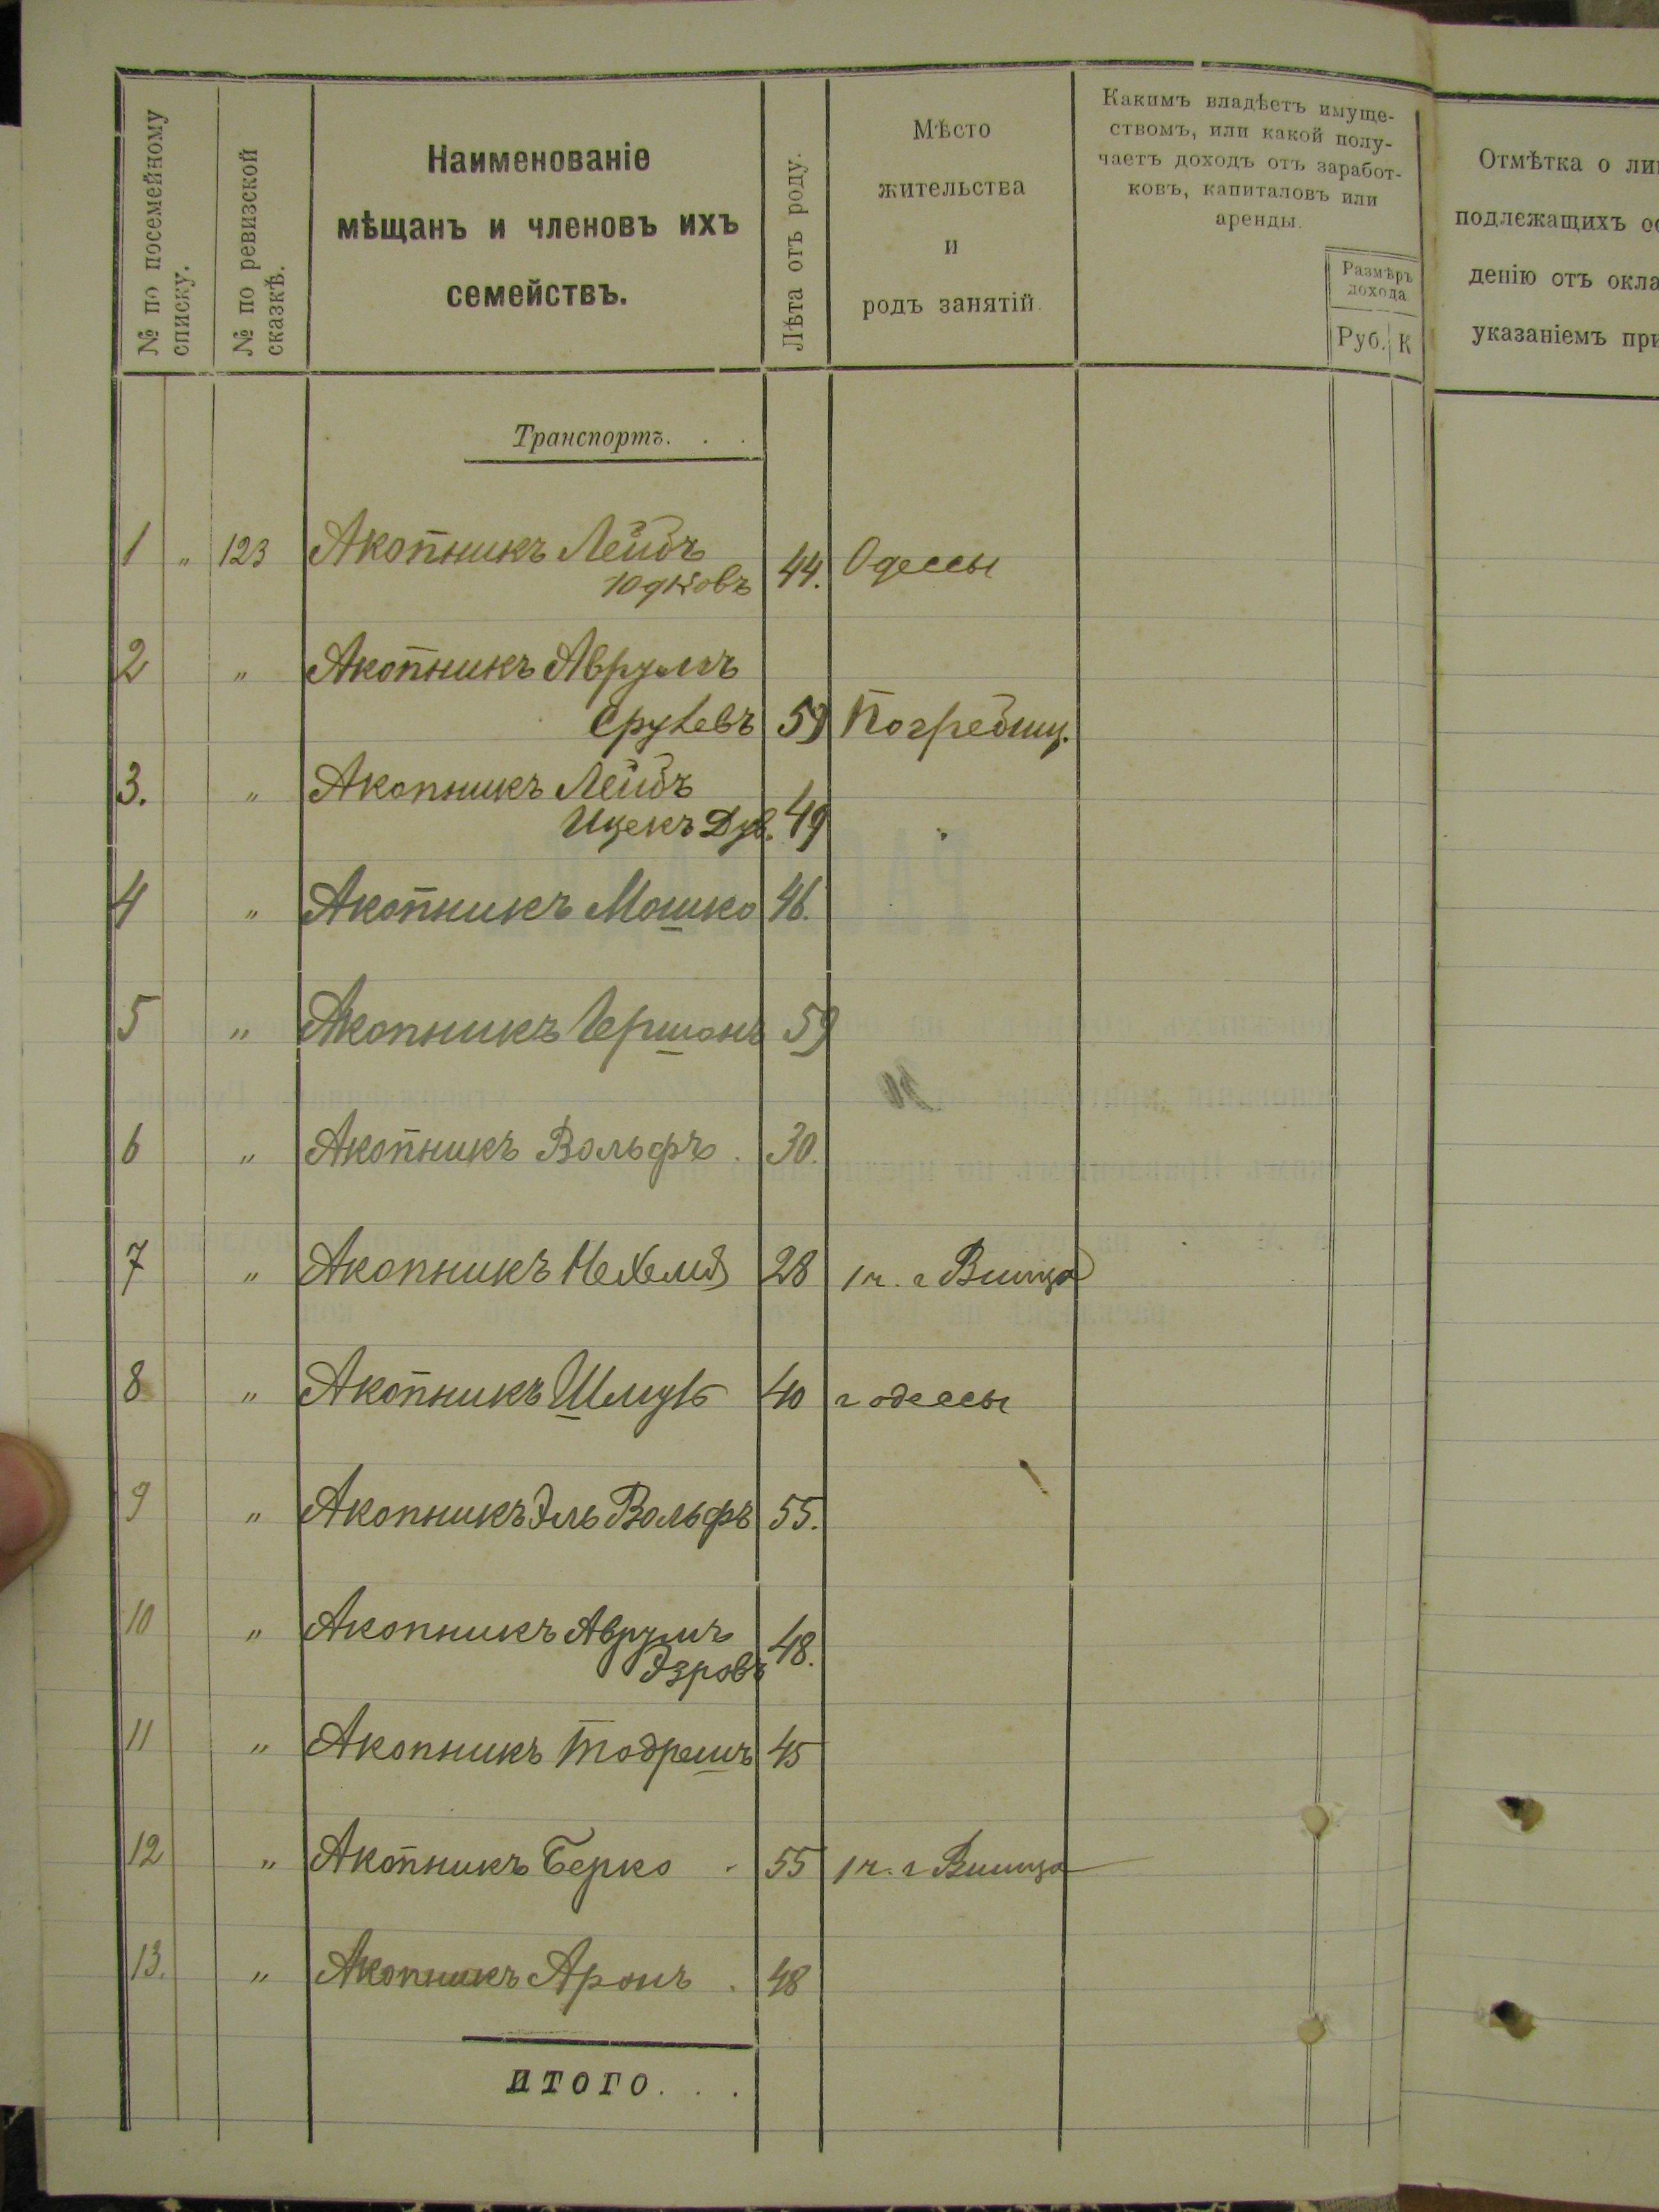 № по посемейному
списку.
№ по ревизской
сказкѣ.
Наименованіе
мѣщанъ и членовъ ихъ
семействъ.
Лѣта отъ роду.
Мѣсто
жительства
и
родъ занятій.
Какимъ владѣетъ имуще-
ствомъ, или какой полу-
чаетъ доходъ отъ заработ-
ковъ, капиталовъ или
аренды.
Размѣръ
дохода
Руб. К
Отмѣтка о ли
подлежащихъ ос
денію отъ окла
указаніемъ при
Транспортъ. . .
1 " 123 Акопникъ Лейбъ
Юдковъ 44. Одессы
2 " Акопникъ Аврумъ
Срулевъ 59 Погребищ.
3. " Акопникъ Лейбъ
Ицекъ Дув. 49 "
4 " Акопникъ Мошко 46.
5 " Акопникъ Гершонъ 59
6 " Акопникъ Вольфъ . 30.
7 " Акопникъ Нехемя 28 1 ч. г Виница
8 " Акопникъ Шмуль 40 г одессы
9 " Акопникъ Эль Вольфъ 55.
10 " Акопникъ Аврумъ
Эзровъ 48.
11 " Акопникъ Тодресъ 45
12 " Акопникъ Берко - 55 1 ч. г Виница
13. " Акопникъ Аронъ . 48
ИТОГО. . .